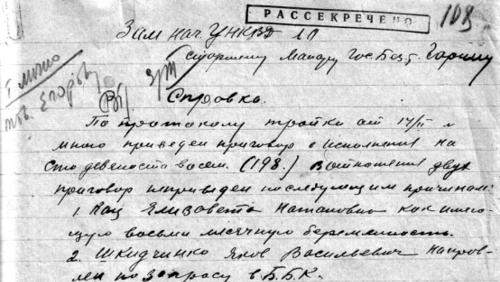 РАССЕКРЕЧЕНО
108
Зам нач. УНКВД ЛО
Старшему Майору Гос. Без. т. Гарину
Лично
тов. Егоров
Справка.
По протоколу тройки от 14/II
мною приведен приговор в исполнения на
сто девеноста восем. (198.) Вотношения двух
приговор неприведен последующим причинам:
1. Кац Елизовета Натановно как имею-
щую восьми месячную беременность.
2. Шкидченко Яков Васильевич напров-
лен по запросу в Б.Б.К.